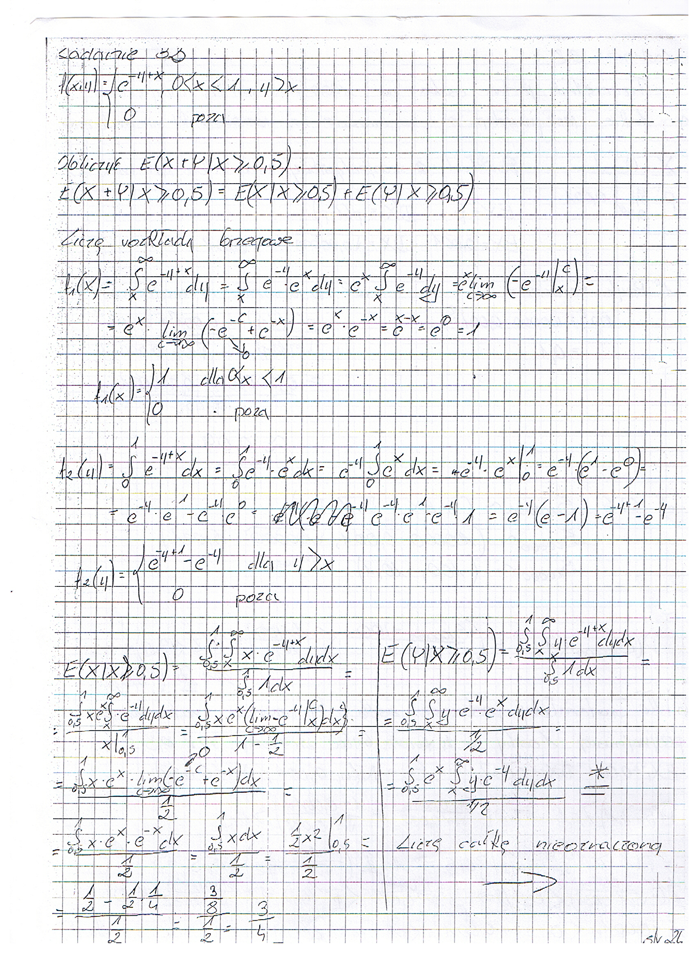 zadanie 33
f(x,y) = { e^{-y+x}, 0<x<1, y>x
0 poza
Obliczyć E(X+Y|X⩾0,5).
E(X+Y|X⩾0,5) = E(X|X⩾0,5) + E(Y|X⩾0,5)
Liczę rozkłady brzegowe
f₁(x) = ∫_x^∞ e^{-y+x} dy = ∫_x^∞ e^{-y}·e^x dy = e^x ∫_x^∞ e^{-y} dy = e^x lim_{c→∞} (-e^{-y}|_x^c) =
= e^x · lim_{c→∞} (-e^{-c} + e^{-x}) = e^x · e^{-x} = e^{x-x} = e^0 = 1
→0
f₁(x) = { 1 dla 0<x<1
0 poza
f₂(y) = ∫_0^1 e^{-y+x} dx = ∫_0^1 e^{-y}·e^x dx = e^{-y} ∫_0^1 e^x dx = e^{-y}·e^x|_0^1 = e^{-y}·(e^1 - e^0) =
= e^{-y}·e^1 - e^{-y}·e^0 = e^{-y}·e^1 - e^{-y}·1 = e^{-y}(e-1) = e^{-y+1} - e^{-y}
f₂(y) = { e^{-y+1} - e^{-y} dla y>x
0 poza
E(X|X⩾0,5) = (∫_{0,5}^1 ∫_x^∞ x·e^{-y+x} dydx) / (∫_{0,5}^1 1dx) =
= (∫_{0,5}^1 x e^x ∫_x^∞ e^{-y} dydx) / (x|_{0,5}^1) = (∫_{0,5}^1 x e^x (lim_{c→∞} -e^{-y}|_x^c) dx) / (1 - 1/2) =
→0
= (∫_{0,5}^1 x·e^x·lim_{c→∞}(-e^{-c} + e^{-x}) dx) / (1/2) =
= (∫_{0,5}^1 x·e^x·e^{-x} dx) / (1/2) = (∫_{0,5}^1 x dx) / (1/2) = (1/2 x²|_{0,5}^1) / (1/2) =
= (1/2 - 1/2·1/4) / (1/2) = (3/8) / (1/2) = 3/4
E(Y|X⩾0,5) = (∫_{0,5}^1 ∫_x^∞ y·e^{-y+x} dydx) / (∫_{0,5}^1 1dx) =
= (∫_{0,5}^1 ∫_x^∞ y·e^{-y}·e^x dydx) / (1/2) =
= (∫_{0,5}^1 e^x ∫_x^∞ y·e^{-y} dydx) / (1/2) *
Liczę całkę nieoznaczoną
→